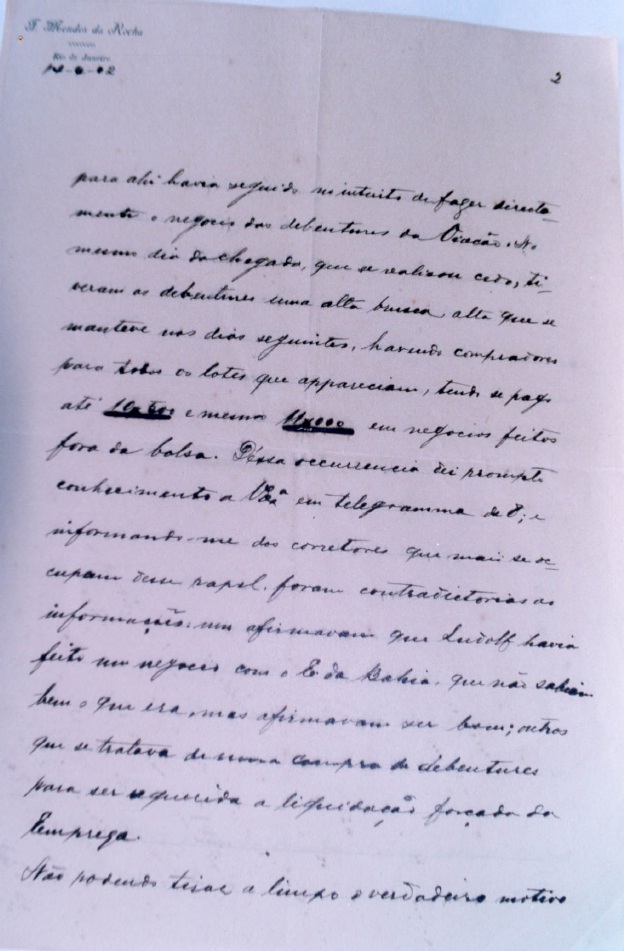 J. Mendes da Rocha
Rio de Janeiro
2
para ahi havia seguido no intuito de fazer directa-
mente o negocio das debentures da Viação. No
mesmo dia da chegada, que se realizou cedo, ti-
veram as debentures uma alta brusca, alta que se
manteve nos dias seguintes, havendo compradores
para todos os lotes que appareciam, tendo se pago
até e mesmo 11x000 em negocios feitos
fora da bolsa. Dessa occurrencia dei prompto
conhecimento a em telegramma de 8; e
informando-me dos corretores que mais se oc-
cupam desse papel, foram contradictorias as
informações: uns afirmavam que Ludolf havia
feito um negocio com o E. da Bahia, que não sabiam
bem o que era, mas afirmavam ser bom; outros
que se tratava de nova compra de debentures
para ser requerida a liquidação forçada da
Empreza.
Não podendo tirar a limpo o verdadeiro motivo